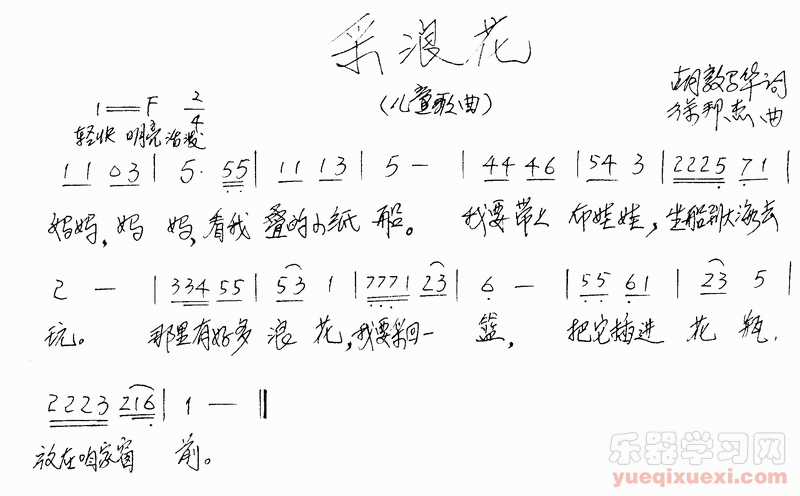 采浪花
(儿童歌曲)
胡敦华词
徐邦杰曲
1=F 2/4
轻快 明亮 活泼
1 1 0 3 | 5· 5 5 | 1 1 1 3 | 5 — | 4 4 4 6 | 5 4 3 | 2 2 2 5 7 1 |
妈妈,妈妈,看我叠的小纸船。 我要带上布娃娃,坐船到大海去
2 — | 3 3 4 5 5 | 5 3 1 | 7 7 7 1 2 3 | 6 — | 5 5 6 1 | 2 3 5 |
玩。 那里有好多浪花,我要采回一篮, 把它插进花瓶,
2 2 2 3 2 1 6 | 1 — ‖
放在咱家窗前。
乐器学习网
yueqixuexi.com